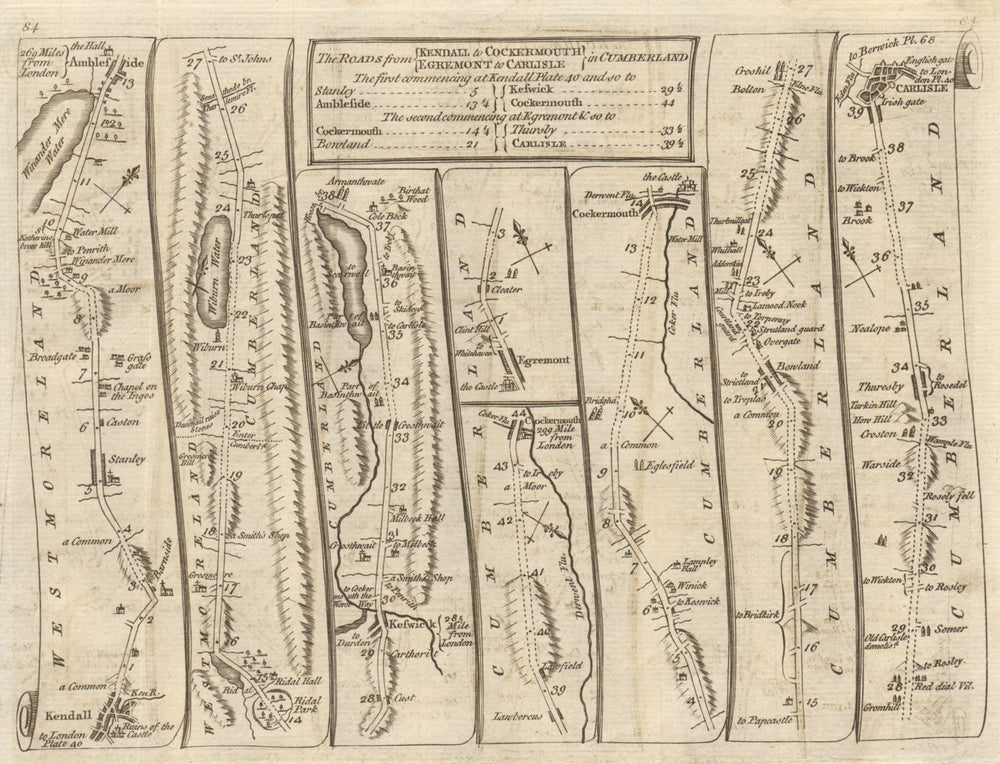 84
The ROADS from {KENDALL to COCKERMOUTH
EGREMONT to CARLISLE} in CUMBERLAND
The first commencing at Kendall Plate 40 and so to
Stanley 5
Ambleside 13¼
Keswick 29½
Cockermouth 44
The second commencing at Egremont & so to
Cockermouth 14¼
Bowland 21
Thursby 33½
CARLISLE 39½
269 Miles from London
the Hall
Ambleside
13
12
Winander Mere Water
11
10
Water Mill
to Penrith
Winander Mere
9
a Moor
8
Broadgate
Grass gate
7
Chapel on the Inges
6
Caston
Stanley
5
4
a Common
Barnside
3
2
1
a Common
Ken R.
Kendall
Ruins of the Castle
to London Plate 40
WESTMORELAND
27
to St. Johns
26
25
24
Thurlspot
23
Wiburn Water
22
Wiburn
21
Wiburn Chap.
20
Enter Cumberl.
Dunmail raise Stones
Greenner Hill
19
18
a Smith's Shop
Gresmere
17
16
15
Ridal Hall
Ridal
Ridal Park
14
CUMBERLAND
WESTMORELAND
Armanthwate
38
Birthat Wood
Cole Beck
37
to Ireby
Basinthwait
36
to Skidow
to Carlisle
35
Part of Basinthwait
34
Part of Basinthwait
Grosthwait
33
32
Milbeck Hall
Grosthwait
to Milbeck
31
a Smith's Shop
to Cockermouth the Warse Way
30
to Penrith
Keswick
285 Mile from London
to Durden
29
Carthorit
28
Cust
CUMBERLAND
3
2
Cleater
1
Clint Hill
Whitehaven
Egremont
the Castle
LAND
44
Coker Flu.
Cockermouth
299 Mile from London
43
to Ireby
a Moor
42
41
Derwent Flu.
40
Liberfield
39
Lawbercus
CUMBER
the Castle
Derwent Flu.
14
Cockermouth
Water Mill
13
12
Coker Flu
11
Bridgha
10
a Common
9
Eglesfield
8
7
Lampley Hall
Winick
6
to Keswick
5
4
CUMBERLAND
Croshil
27
Bolton
26
25
Thurtmilleat
24
Whithall
Adderstin
23
Mill
to Ireby
22
Lamood Nook
to Torpenny
Strutland guard
Overgate
21
Bowland
to Strictland
to Treplan
a Common
20
19
18
17
to Bridkirk
16
15
to Papcastle
CUMBERLAND
to Berwick Pl. 68
English gate
to London Pl. 40
CARLISLE
Eden Flu
Irish gate
39
38
to Brook
to Wickton
37
Brook
36
35
Nealope
34
Thuresby
to Rosedel
Turkin Hill
How Hill
33
Croston
Wample Flu
Warside
32
Rosely fell
31
30
to Wickton
to Rosley
29
Somer
Old Carlisle demolisd.
to Rosley
28
Red dial Vil.
Gromhill
CUMBERLAND